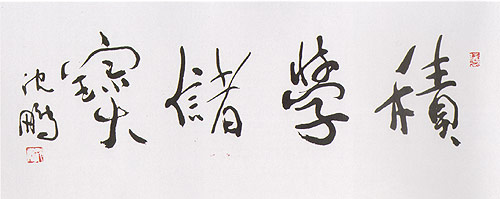 積學儲寶
沈鵬